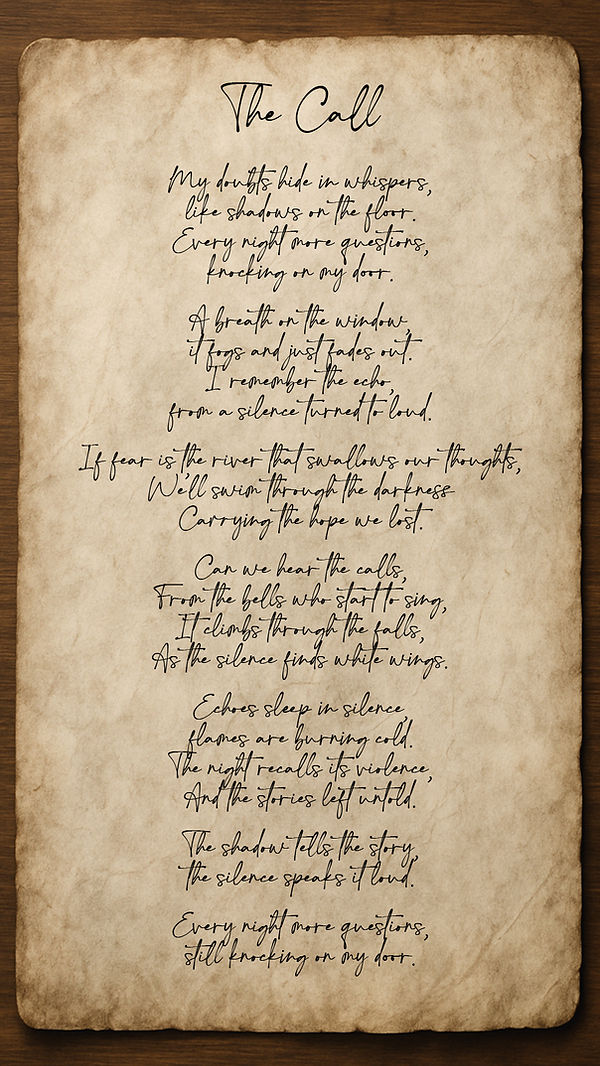 The Call
My doubts hide in whispers,
like shadows on the floor.
Every night more questions,
knocking on my door.
A breath on the window,
it fogs and just fades out.
I remember the echo,
from a silence turned to loud.
If fear is the river that swallows our thoughts,
We'll swim through the darkness
Carrying the hope we lost.
Can we hear the calls,
From the bells who start to sing,
It climbs through the falls,
As the silence finds white wings.
Echoes sleep in silence,
flames are burning cold.
The night recalls its violence,
And the stories left untold.
The shadow tells the story,
the silence speaks it loud.
Every night more questions,
still knocking on my door.